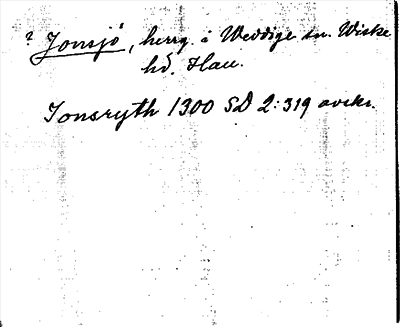 ? Jonsjö, herrg. i Weddige sn. Wiske
hd. Hall.
Jonsryth 1300 SD 2:319 avskr.